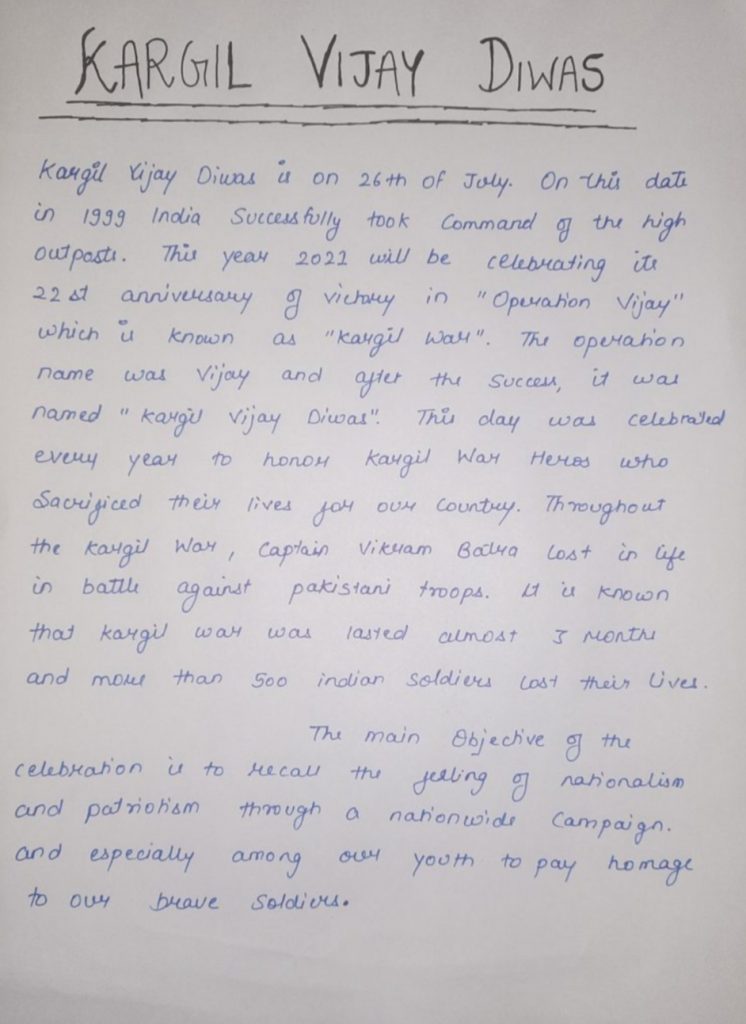 KARGIL VIJAY DIWAS
Kargil Vijay Diwas is on 26th of July. On this date
in 1999 India Successfully took Command of the high
outposts. This year 2022 will be celebrating its
22st anniversary of victory in "Operation Vijay"
which is known as "Kargil War". The operation
name was Vijay and after the success, it was
named "Kargil Vijay Diwas". This day was celebrated
every year to honor Kargil War Heros who
Sacrificed their lives for our Country. Throughout
the Kargil War, Captain Vikram Batra Lost in life
in battle against pakistani troops. It is known
that Kargil war was lasted almost 3 Months
and more than 500 indian Soldiers Lost their Lives.
The main Objective of the
celebration is to recall the feeling of nationalism
and patriotism through a nationwide Campaign.
and especially among our youth to pay homage
to our brave Soldiers.